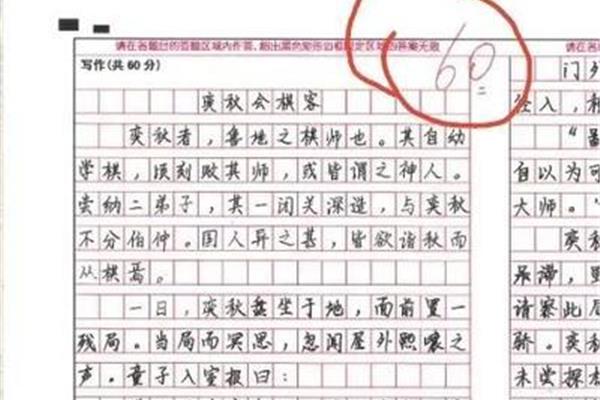 请在各题目的答题区域内作答,超出黑色矩形边框限定区域的答案无效
请在各
写作(共60分)
60
弈秋会棋客
弈秋者,鲁地之棋师也。其自幼
学棋,顷刻败其师,或皆谓之神人。
尝纳二弟子,其一闭关深造,与弈秋
不分伯仲。国人异之甚,皆欲诣秋而
从棋焉。
一日,弈秋盘坐于地,面前置一
残局。当局而冥思,忽闻屋外熙嚷之
声。童子入室报曰:
门外
径入,
自以为可
大师。
弈秋
呆滞,
请察此后
骄。弈秋
未尝探